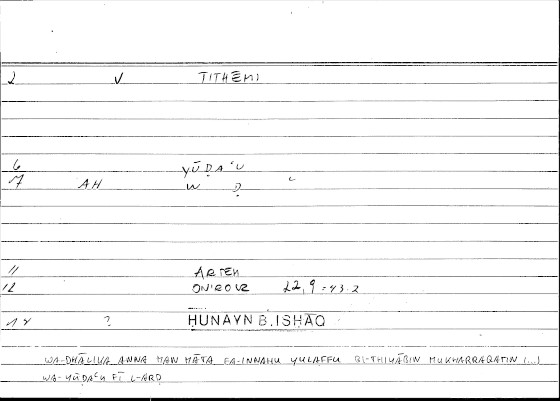 2 V TITHĒMI
6 YŪḌAʿU
7 AH W Ḍ ʿ
11 ARTEM
12 ONIROCR 22,9 = 43.2
14 ? HUNAYN B. ISHĀQ
WA-DHĀLIKA ANNA MAN MĀTA FA-INNAHU YULAFFU BI-THIYĀBIN MUKHARRAQATIN (...)
WA-YŪḌAʿU FĪ L-ARḌ